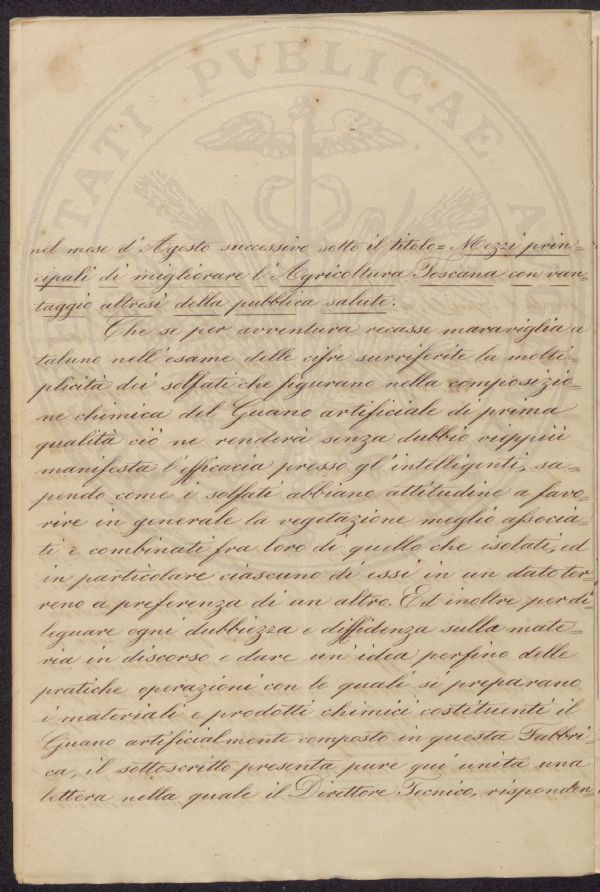 nel mese d'Agosto successivo sotto il titolo= Mezzi prin=
cipali di migliorare l'Agricoltura Toscana con van=
taggio altresì della pubblica salute.
Che se per avventura recasse maraviglia a
taluno nell'esame delle cifre surriferite la molti=
plicità dei solfati che figurano nella composizio=
ne chimica del Guano artificiale di prima
qualità ciò ne renderà senza dubbio vieppiù
manifesta l'efficacia presso gl'intelligenti, sa=
pendo come i solfati abbiano attitudine a favo=
rire in generale la vegetazione meglio associa=
ti e combinati fra loro di quello che isolati, ed
in particolare ciascuno di essi in un dato ter
reno a preferenza di un altro. Ed inoltre per di=
leguare ogni dubbiezza e diffidenza sulla mate=
ria in discorso e dare un'idea perfino delle
pratiche operazioni con le quali si preparano
i materiali e prodotti chimici costituenti il
Guano artificialmente composto in questa Fabbri=
ca, il sottoscritto presenta pure qui unita una
lettera nella quale il Direttore Tecnico, risponden=
TATI PVBLICAE